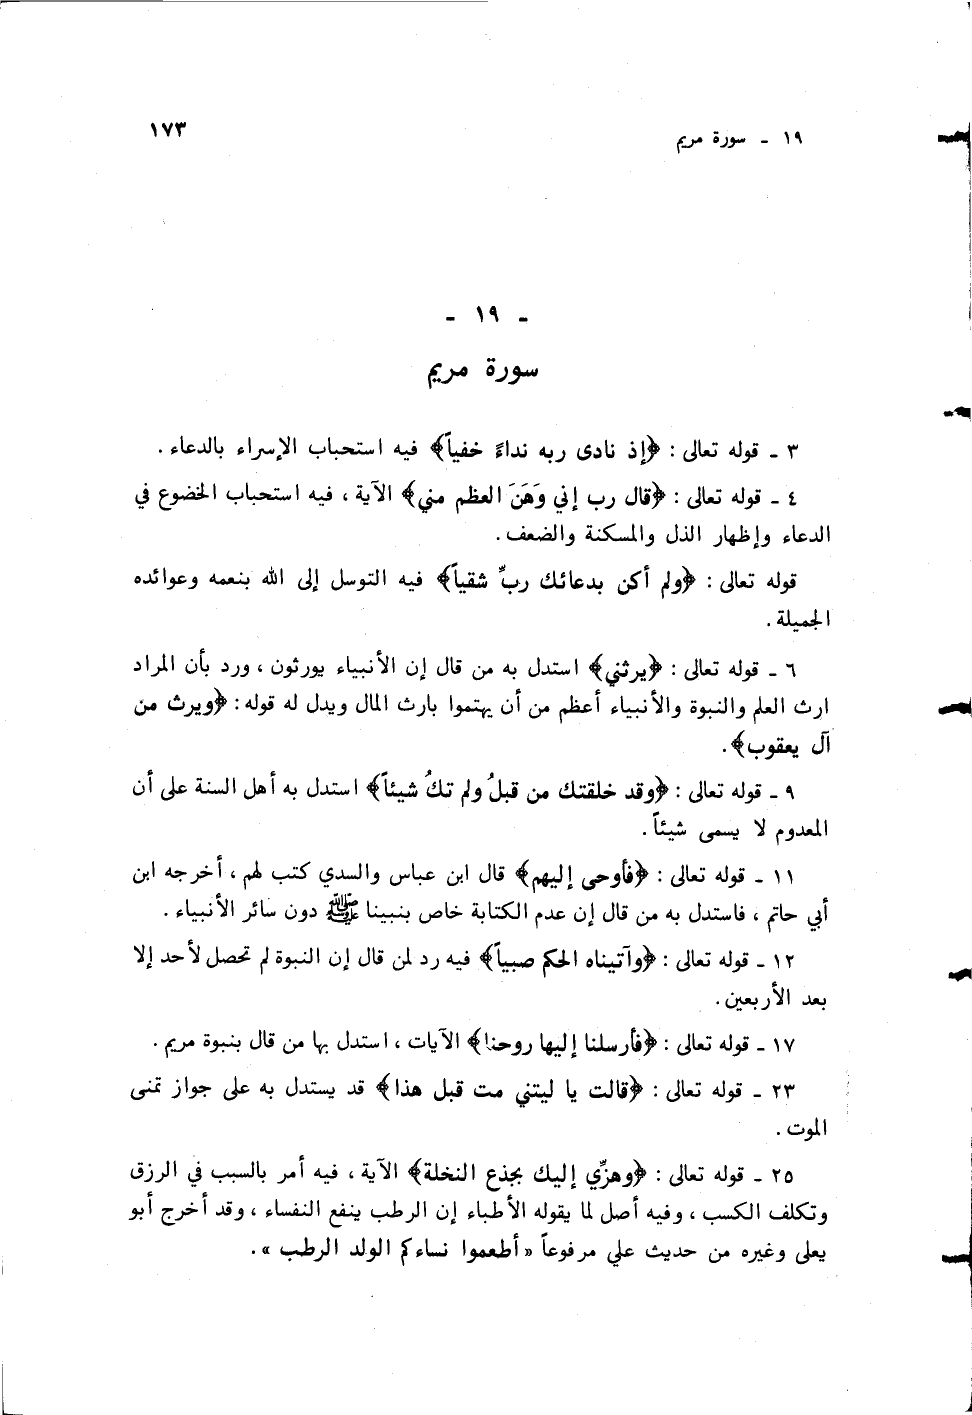 ١٩ ـ سورة مريم
١٧٣
ـ ١٩ ـ
سورة مريم
٣ ـ قوله تعالى : ﴿إذ نادى ربه نداءً خفياً﴾ فيه استحباب الإسراء بالدعاء .
٤ ـ قوله تعالى : ﴿قال رب إني وَهَنَ العظم مني﴾ الآية ، فيه استحباب الخضوع في
الدعاء وإظهار الذل والمسكنة والضعف .
قوله تعالى : ﴿ولم أكن بدعائك ربِّ شقياً﴾ فيه التوسل إلى الله بنعمه وعوائده
الجميلة .
٦ ـ قوله تعالى : ﴿يرثني﴾ استدل به من قال إن الأنبياء يورثون ، ورد بأن المراد
ارث العلم والنبوة والأنبياء أعظم من أن يهتموا بارث المال ويدل له قوله : ﴿ويرث من
آل يعقوب﴾ .
٩ ـ قوله تعالى : ﴿وقد خلقتك من قبلُ ولم تكُ شيئاً﴾ استدل به أهل السنة على أن
المعدوم لا يسمى شيئاً .
١١ ـ قوله تعالى : ﴿فأوحى إليهم﴾ قال ابن عباس والسدي كتب لهم ، أخرجه ابن
أبي حاتم ، فاستدل به من قال إن عدم الكتابة خاص بنبينا ﷺ دون سائر الأنبياء .
١٢ ـ قوله تعالى : ﴿وآتيناه الحكم صبياً﴾ فيه رد لمن قال إن النبوة لم تحصل لأحد إلا
بعد الأربعين .
١٧ ـ قوله تعالى : ﴿فأرسلنا إليها روحنا﴾ الآيات ، استدل بها من قال بنبوة مريم .
٢٣ ـ قوله تعالى : ﴿قالت يا ليتني مت قبل هذا﴾ قد يستدل به على جواز تمنى
الموت .
٢٥ ـ قوله تعالى : ﴿وهزِّي إليك بجذع النخلة﴾ الآية ، فيه أمر بالسبب في الرزق
وتكلف الكسب ، وفيه أصل لما يقوله الأطباء إن الرطب ينفع النفساء ، وقد أخرج أبو
يعلى وغيره من حديث علي مرفوعاً « أطعموا نساءكم الولد الرطب » .